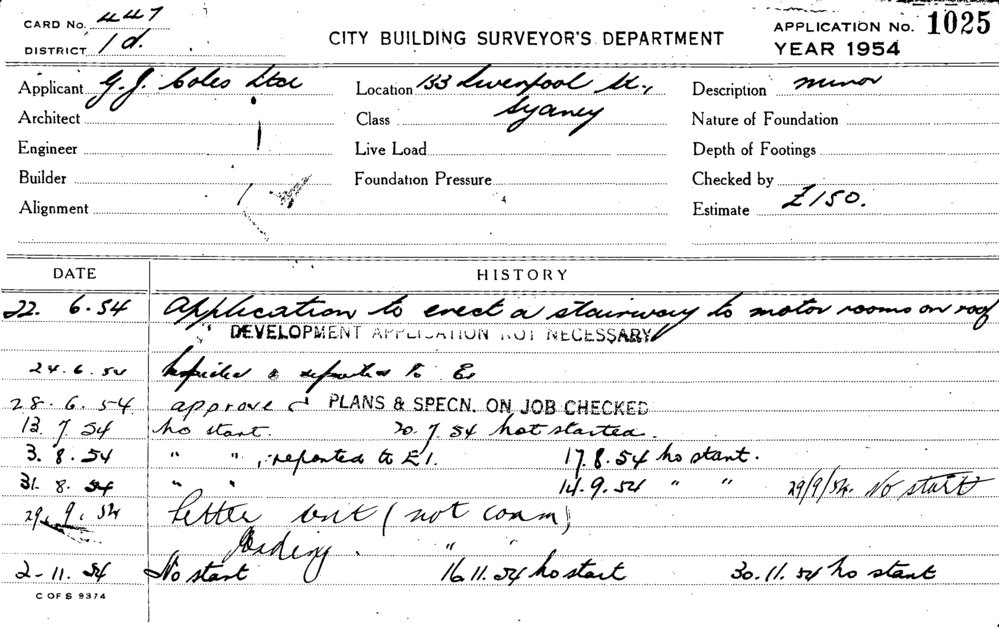 CARD No. 447
DISTRICT 1d.
CITY BUILDING SURVEYOR'S DEPARTMENT
APPLICATION No. 1025
YEAR 1954
Applicant G. J. Coles Ltd Location 133 Liverpool St., Description minor
Architect Class Sydney Nature of Foundation
Engineer Live Load Depth of Footings
Builder Foundation Pressure Checked by
Alignment Estimate £150.
DATE HISTORY
22. 6.54 Application to erect a stairway to motor rooms on roof
DEVELOPMENT APPLICATION NOT NECESSARY
24.6.54 Inspected & reported to
28.6.54 approved PLANS & SPECN. ON JOB CHECKED
13.7.54 no start. 20.7.54 not started.
3.8.54 " ", reported to E1. 17.8.54 no start.
31.8.54 " " 14.9.54 " " 29/9/54. No start
29.9.54 Letter sent (not comm)
" "
2-11.54 No start 16.11.54 no start 30.11.54 no start
C OF S 9374